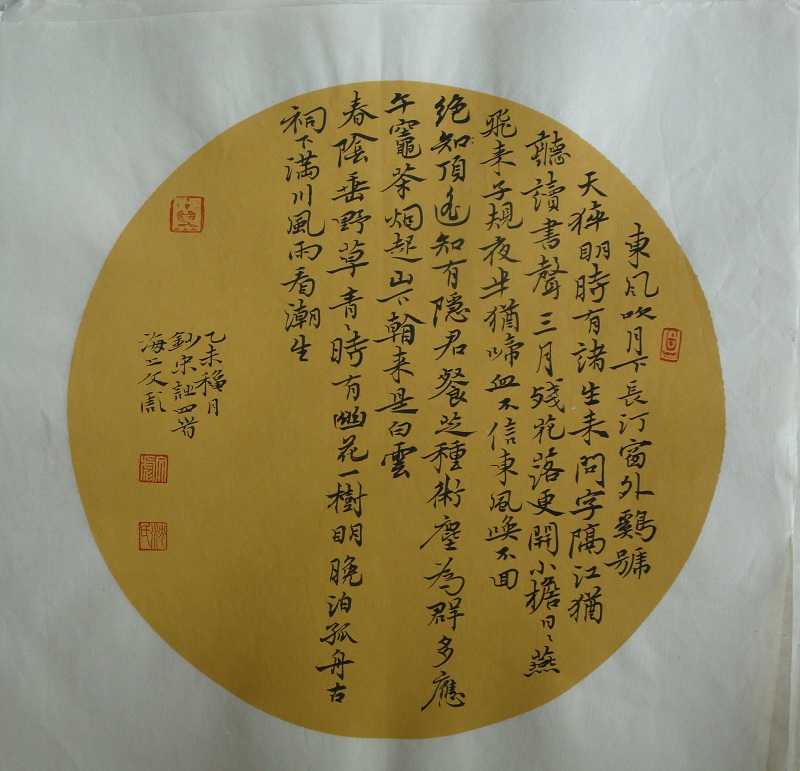 東風吹月下長汀窗外鷄號
天明時有諸生来問字隔江猶
聽讀書聲三月殘花落更開小檐日〻燕
飛来子規夜半猶啼血不信東風喚不回
絶知頂遙知有隱君餐芝種術塵為群多應
午竈茶烟起山下翰来是白雲
春陰垂野草青〻時有幽花一樹明晚泊孤舟古
祠下满川風雨看潮生
乙未穐月
宋詩四首
海上